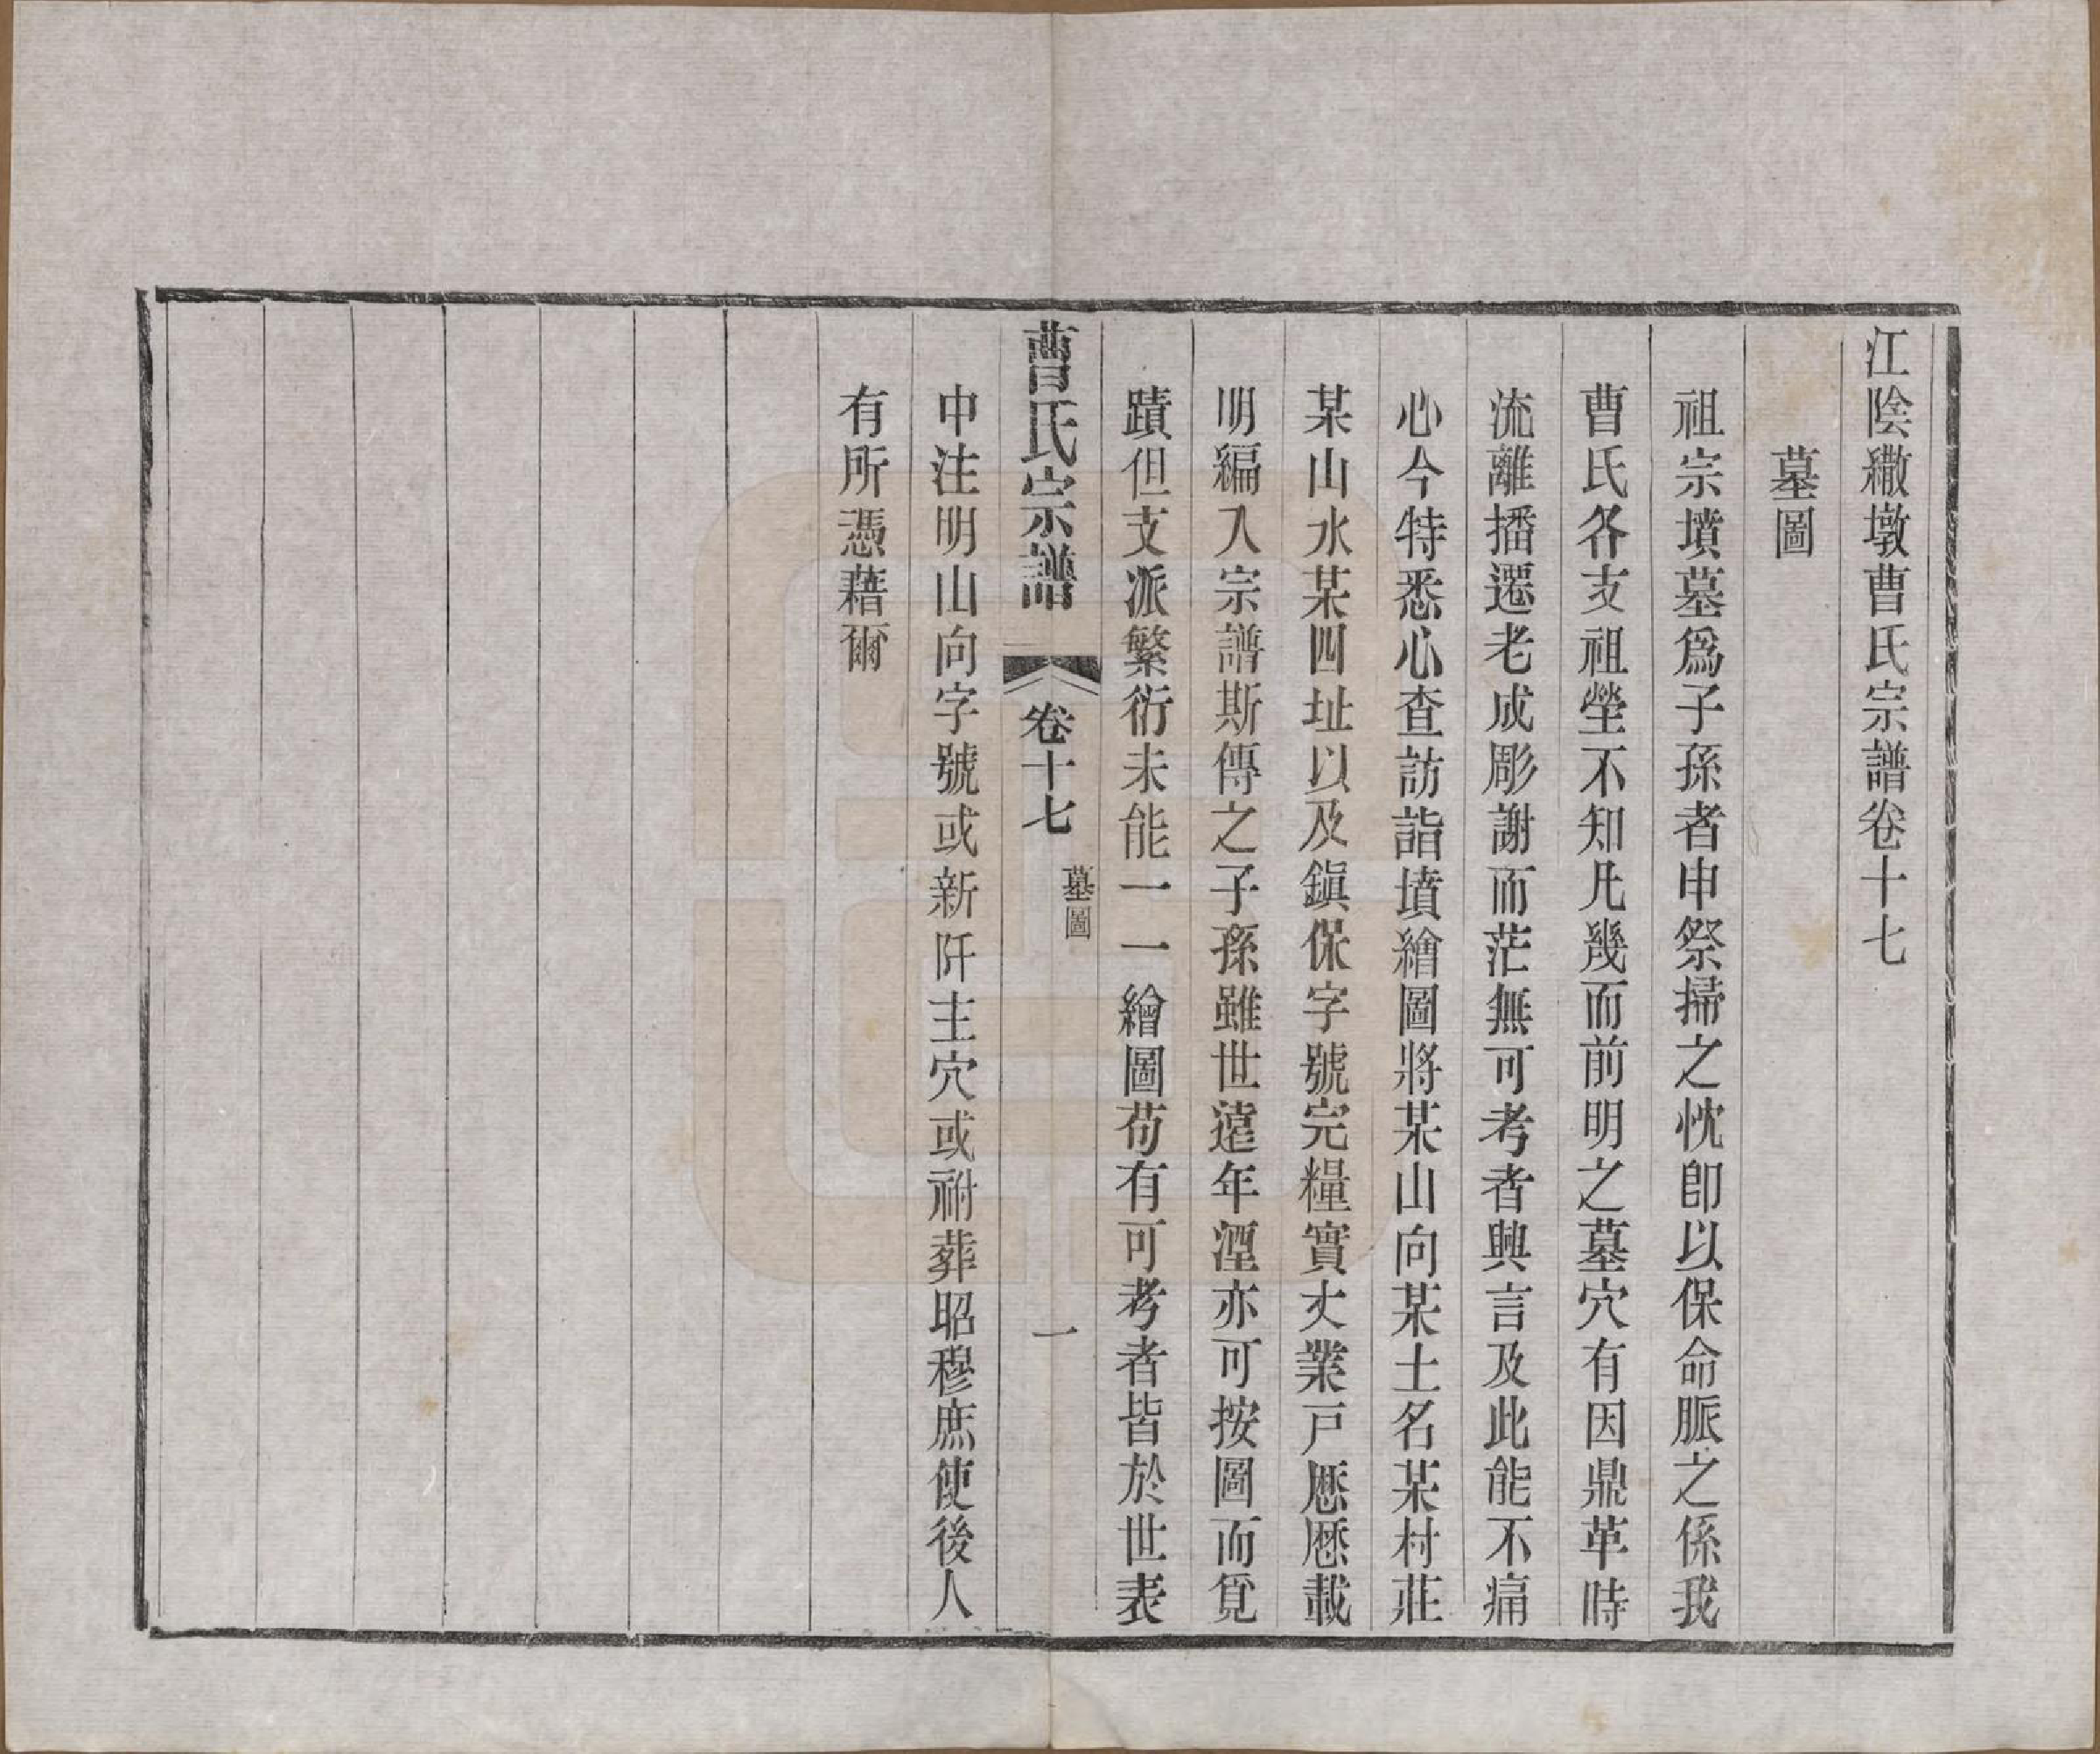 江陰繖墩曹氏宗譜卷十七
墓圖
祖宗墳墓爲子孫者申祭掃之忱卽以保命脈之係我
曹氏各支祖塋不知凡幾而前明之墓穴有因鼎革時
流離播遷老成彫謝而茫無可考者興言及此能不痛
心今特悉心查訪詣墳繪圖將某山向某土名某村莊
某山水某四址以及鎭保字號完糧實丈業戸厯厯載
明編入宗譜斯傳之子孫雖世遠年湮亦可按圖而覓
蹟但支派繁衍未能一一繪圖苟有可考者皆於世表
曹氏宗譜
卷十七
墓圖
一
中注明山向字號或新阡主穴或祔葬昭穆庶使後人
有所憑藉爾